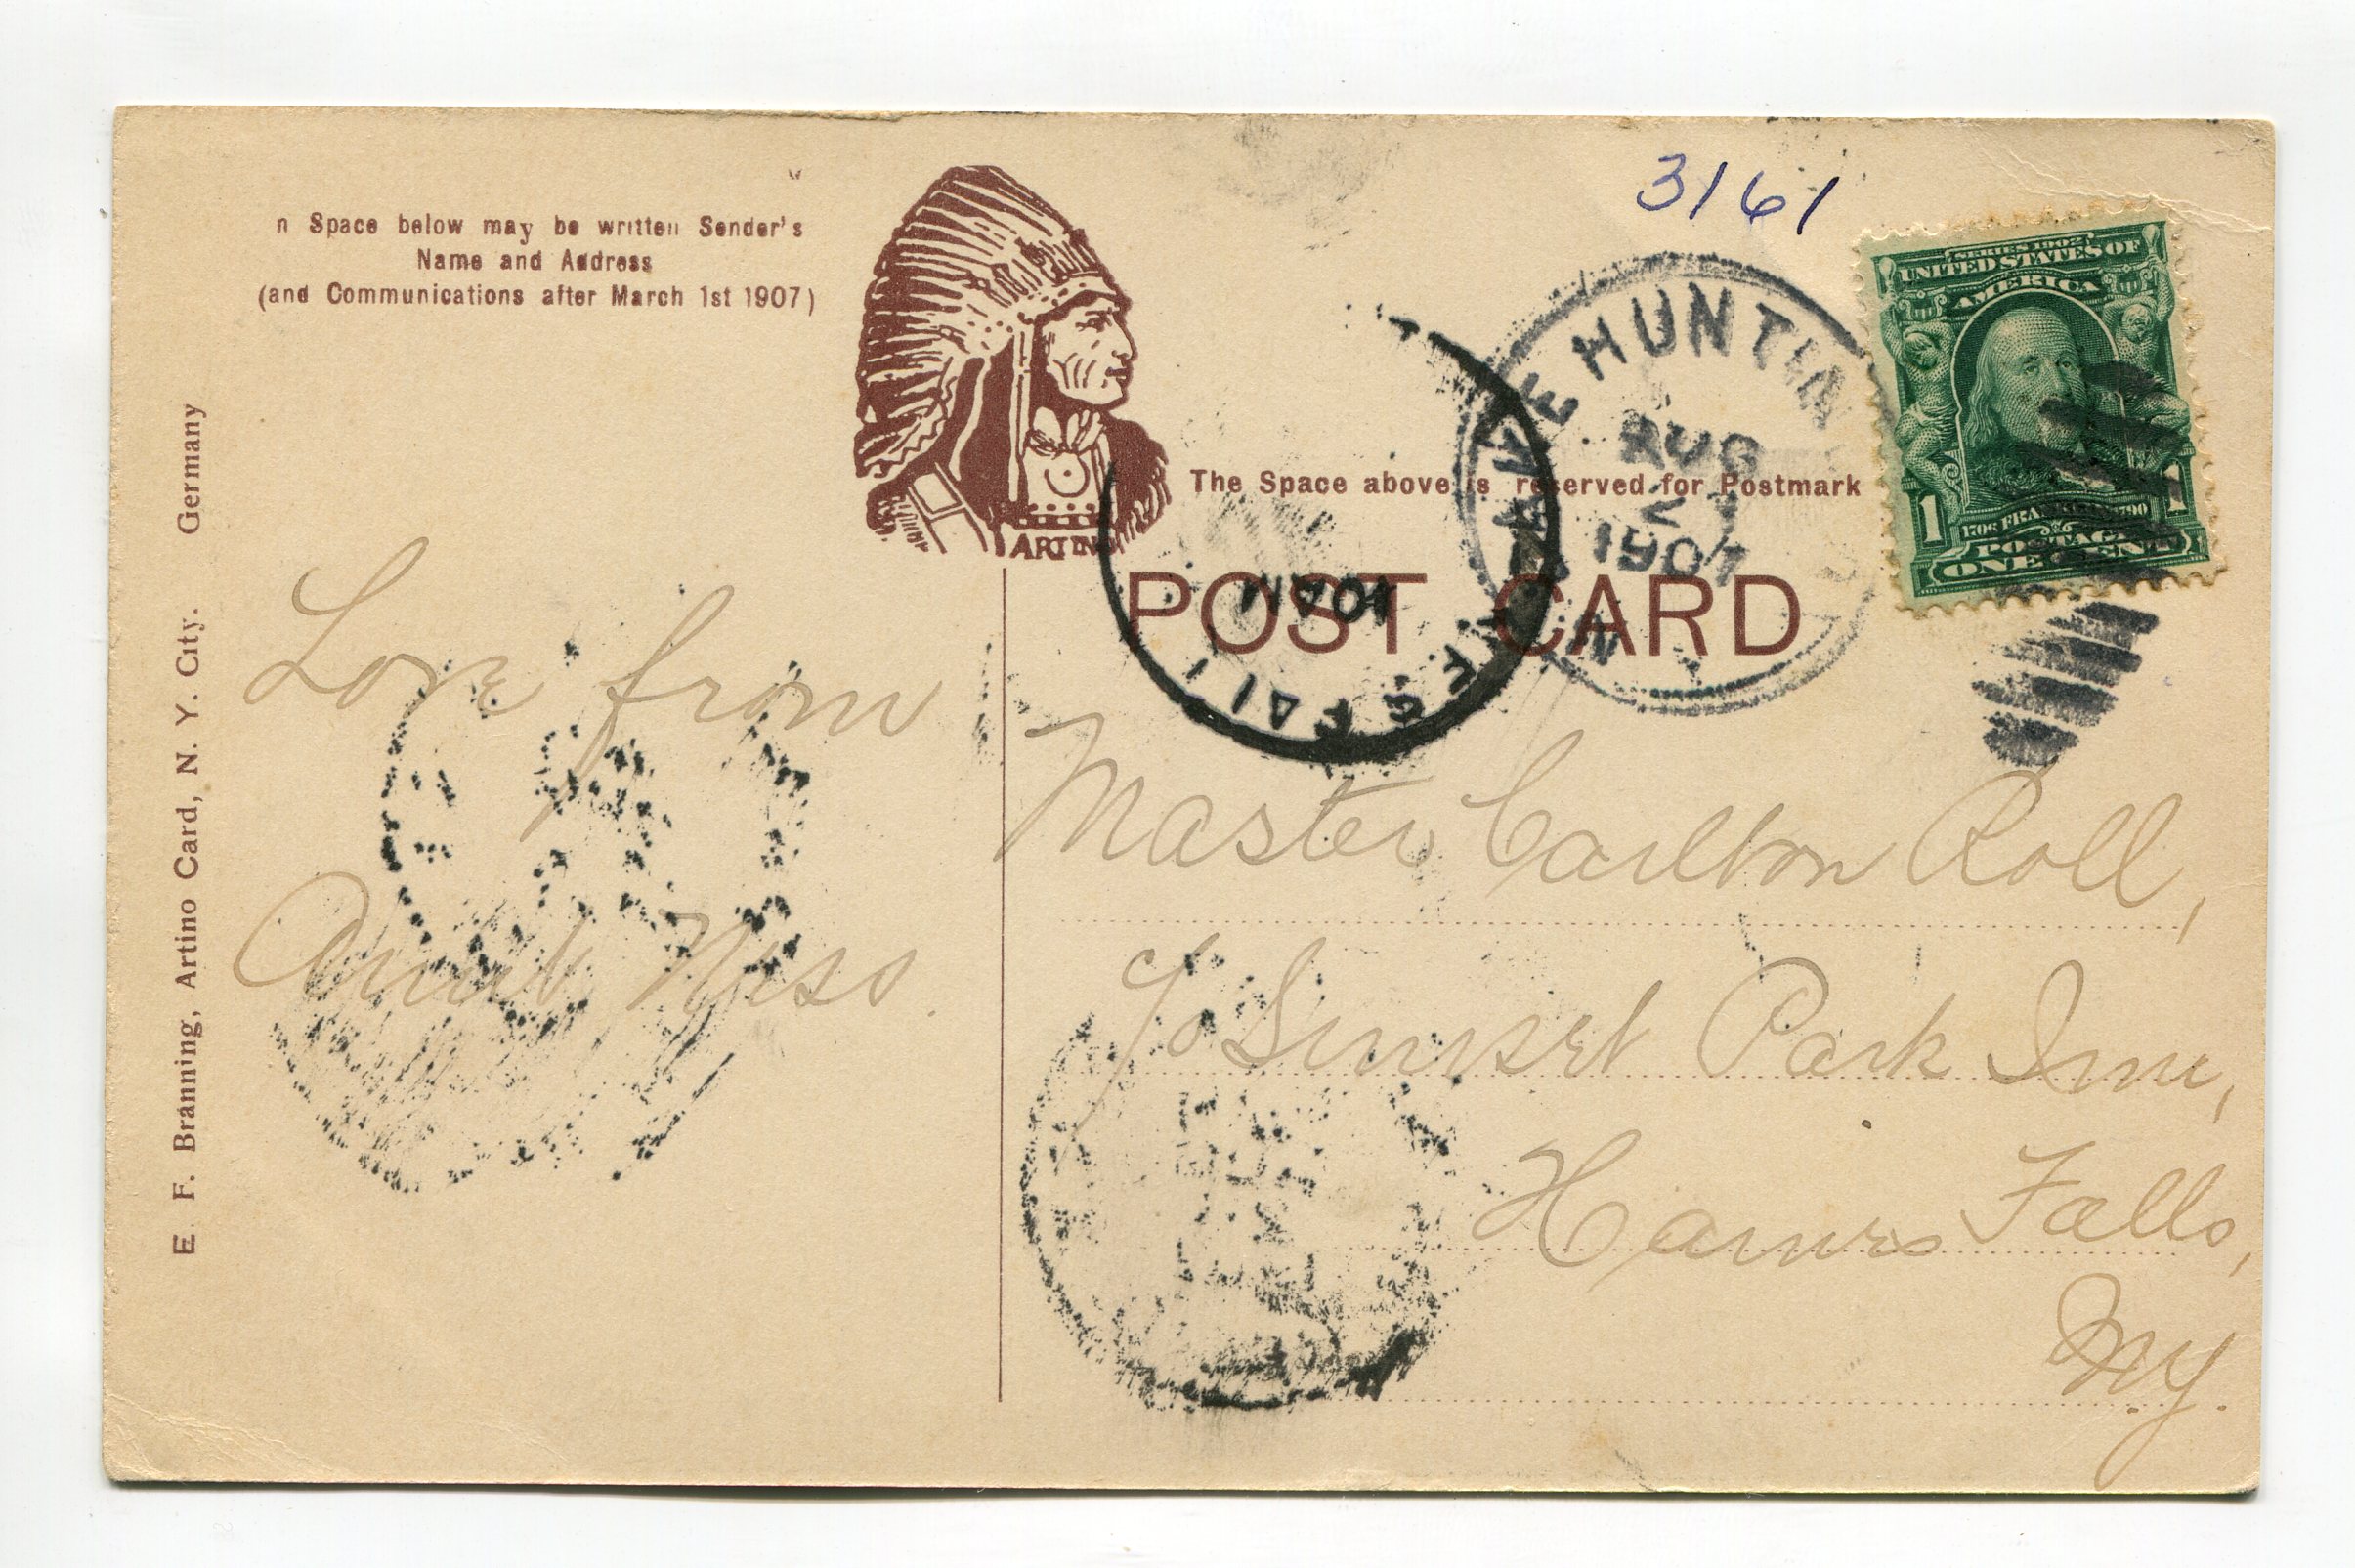 n Space below may be written Sender's
Name and Address
(and Communications after March 1st 1907)
ARTINO
3161
SERIES 1902
UNITED STATES OF
AMERICA
1 1
POSTAGE
ONE CENT
HUNTIN
AUG
1907
The Space above is reserved for Postmark
POST CARD
10 AM
E. F. Branning, Artino Card, N. Y. City. Germany
Love from
Aunt Ness.
Master Carlton Roll,
c/o Sunset Park Inn,
Haines Falls,
N.Y.